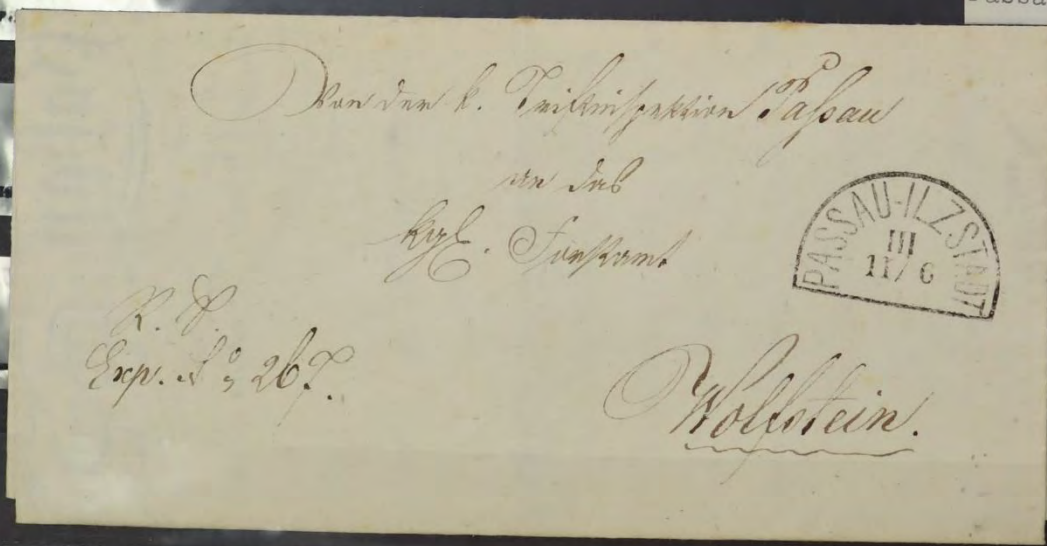 Von der k. Triftinspektion Passau
an das
Kgl. Forstamt
PASSAU-ILZSTADT
III
11/6
R. S.
Exp. No 267.
Wolfstein.